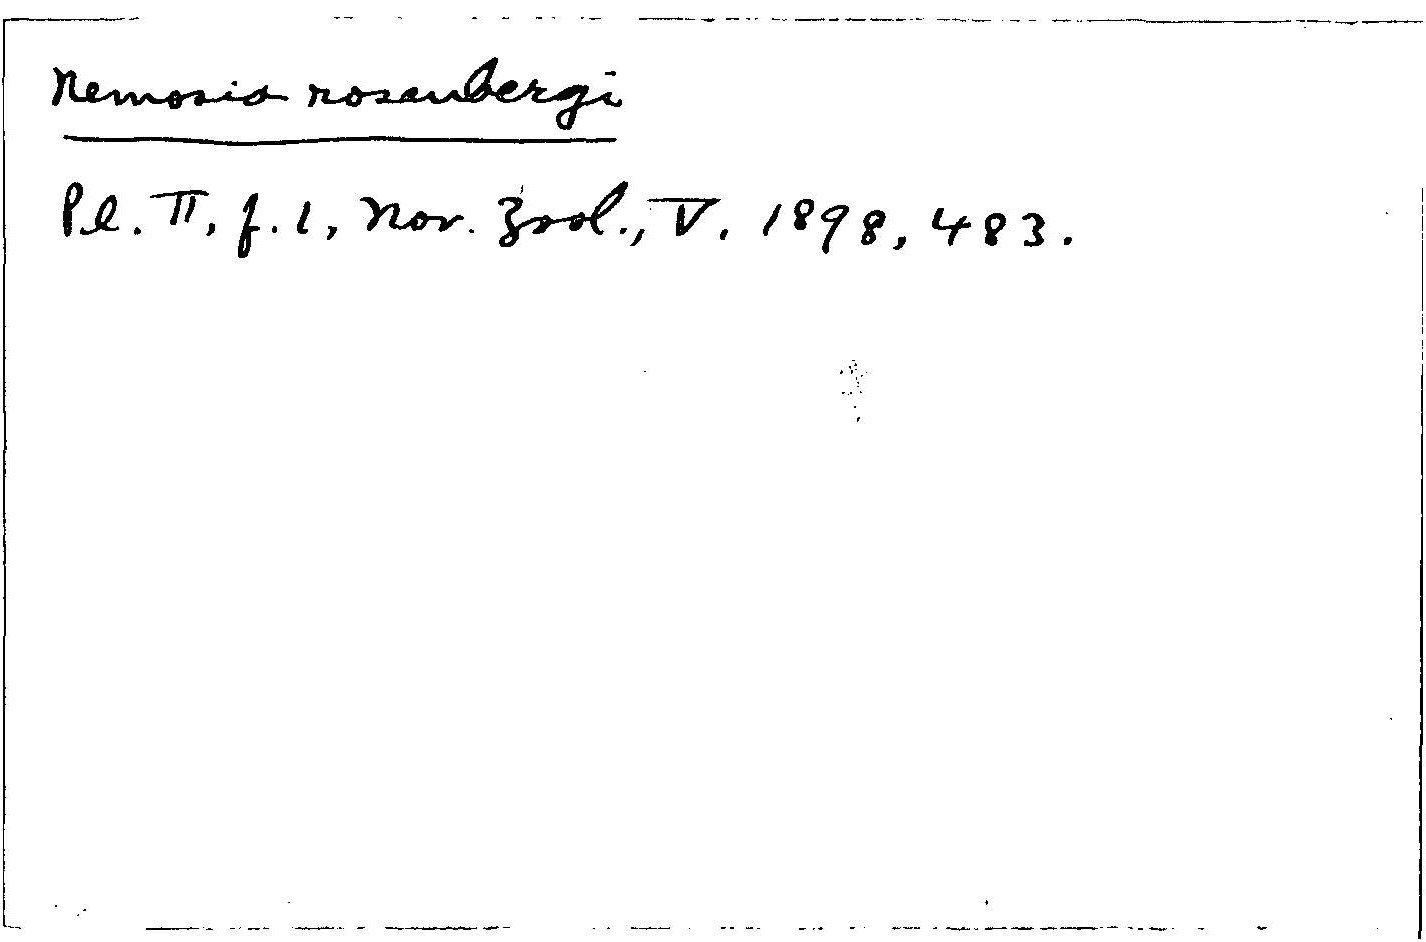 Nemosia rosenbergi
Pl. II, f. 1, Nov. Zool., V. 1898, 483.